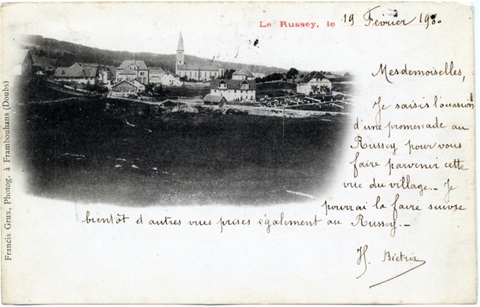 Le Russey, le 19 Février 190
Mesdemoiselles,
Je saisis l'occasion
d'une promenade au
Russey pour vous
faire parvenir cette
vue du village. Je
pourrai la faire suivre
bientôt d'autres vues prises également au Russey.
H.
Francis Grux, Photog. à Frambouhans (Doubs)